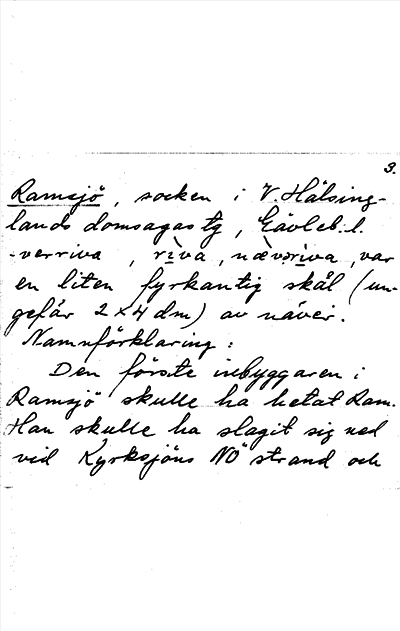 3.
Ramsjö, socken i V. Hälsing-
lands domsagas tg, Gävleb. l.
-verriva, rìva, nævərìva, var
en liten fyrkantig skål (un-
gefär 2×4 dm) av näver.
Namnförklaring:
Den förste inbyggaren i
Ramsjö skulle ha hetat Ram.
Han skulle ha slagit sig ned
vid Kyrksjöns NÖ strand och